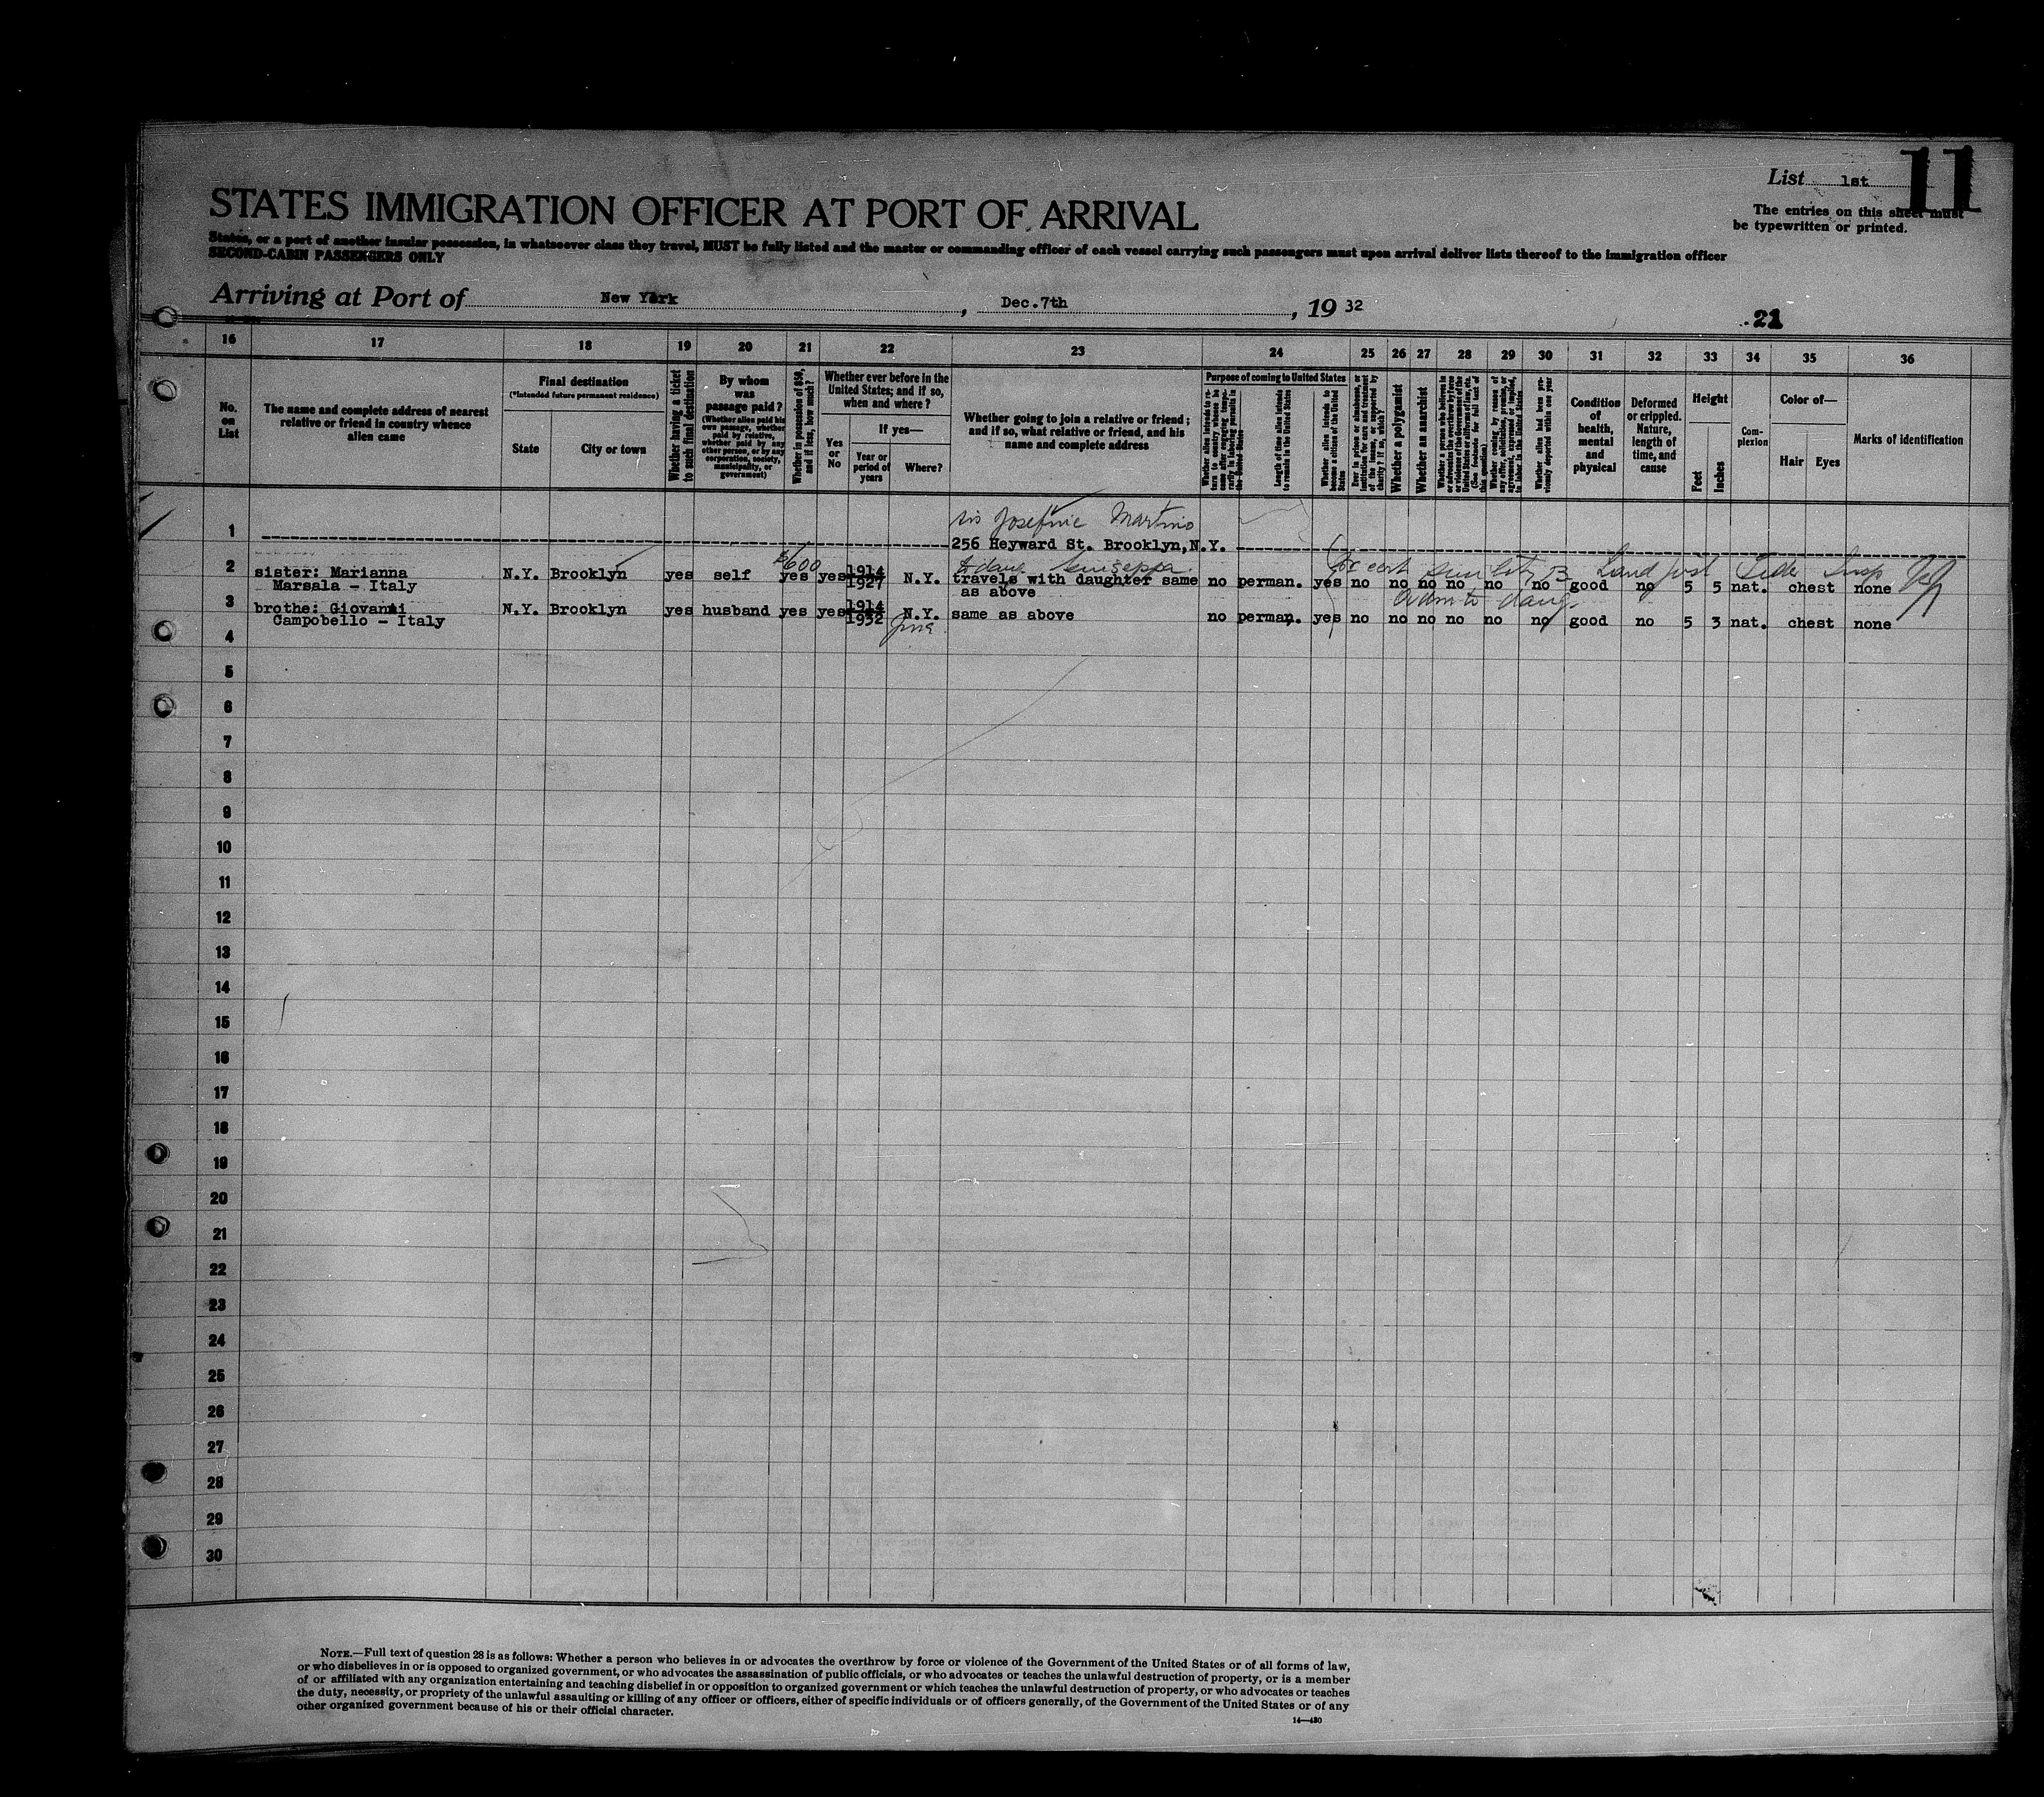 11
List 1st
STATES IMMIGRATION OFFICER AT PORT OF ARRIVAL
The entries on this sheet must
be typewritten or printed.
States, or a port of another insular possession, in whatsoever class they travel, MUST be fully listed and the master or commanding officer of each vessel carrying such passengers must upon arrival deliver lists thereof to the immigration officer
SECOND-CABIN PASSENGERS ONLY
Arriving at Port of New York, Dec.7th, 19 32
21
16 17 18 19 20 21 22 23 24 25 26 27 28 29 30 31 32 33 34 35 36
No. on List
The name and complete address of nearest relative or friend in country whence alien came
Final destination
(*Intended future permanent residence)
State
City or town
Whether having a ticket to such final destination
By whom was passage paid?
(Whether alien paid his own passage, whether paid by relative, whether paid by any other person, or by any corporation, society, municipality, or government)
Whether in possession of $50, and if less, how much?
Whether ever before in the United States; and if so, when and where?
Yes or No
If yes—
Year or period of years
Where?
Whether going to join a relative or friend; and if so, what relative or friend, and his name and complete address
Purpose of coming to United States
Whether alien intends to return to country whence he came after engaging temporarily in laboring pursuits in the United States
Length of time alien intends to remain in the United States
Whether alien intends to become a citizen of the United States
Ever in prison or almshouse, or institution for care and treatment of the insane, or supported by charity? If so, which?
Whether a polygamist
Whether an anarchist
Whether a person who believes in or advocates the overthrow by force or violence of the Government of the United States or all forms of law, etc. (See footnote for full text of this question)
Whether coming by reason of any offer, solicitation, promise, or agreement, expressed or implied, to labor in the United States
Whether alien had been previously deported within one year
Condition of health, mental and physical
Deformed or crippled. Nature, length of time, and cause
Height
Feet
Inches
Complexion
Color of—
Hair
Eyes
Marks of identification
sis Josefine Martino
1 256 Heyward St. Brooklyn, N.Y.
$600
2 sister: Marianna N.Y. Brooklyn yes self yes yes 1914 1927 N.Y. travels with daughter same no perman. yes no no no no no no good no 5 5 nat. chest none
Marsala - Italy as above
3 brothe: Giovanni N.Y. Brooklyn yes husband yes yes 1914 1932 N.Y. same as above no perman. yes no no no no no no good no 5 3 nat. chest none
Campobello - Italy
4
5
6
7
8
9
10
11
12
13
14
15
16
17
18
19
20
21
22
23
24
25
26
27
28
29
30
NOTE.—Full text of question 28 is as follows: Whether a person who believes in or advocates the overthrow by force or violence of the Government of the United States or of all forms of law,
or who disbelieves in or is opposed to organized government, or who advocates the assassination of public officials, or who advocates or teaches the unlawful destruction of property, or is a member
of or affiliated with any organization entertaining and teaching disbelief in or opposition to organized government or which teaches the unlawful destruction of property, or who advocates or teaches
the duty, necessity, or propriety of the unlawful assaulting or killing of any officer or officers, either of specific individuals or of officers generally, of the Government of the United States or of any
other organized government because of his or their official character.
14—480